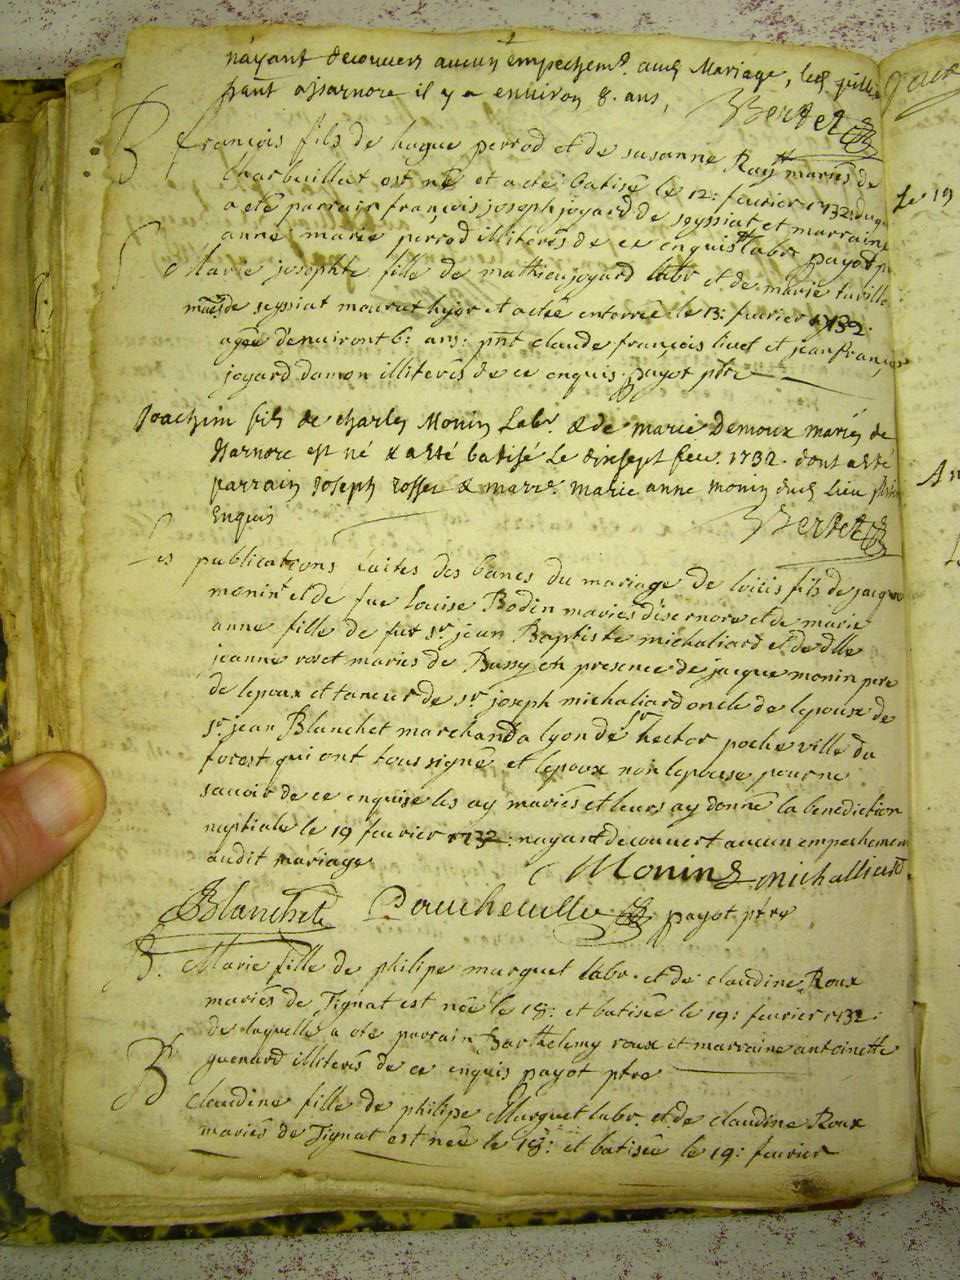 n'ayant decouvert aucun empechemt. aud. Mariage, led. guille
frant assarnore il y a environ 8. ans,
Bertet
B François fils de hugue perrod et de susanne Ray mariés de
Charbuillat est né et a eté batisé le 12: fevrier 1732: duq
a eté parrain françois joseph joyard de seyssiat et marraine
anne marie perrod illiterés de ce enquis labr payot p
Marie josephte fille de mathieu joyard labr et de marie
mariés de seyssiat mourut hyer et a eté enterrée le 13: fevrier 1732:
agée d'environt 6: ans: pnt claude françois et jean françois
joyard damon illiterés de ce enquis. payot ptre
Joachim fils de charles Monin Labr. & de marie Demoux mariés de
Isarnore est né & a eté batisé Le dixsept fev. 1732. dont a eté
parrain joseph rosset & marre. marie anne monin dud. Lieu
Enquis
Bertet
Les publications faites des bancs du mariage de loüis fils de jacque
monin et de fue Loüise Bodin mariés d'isernore et de marie
anne fille de fut sr. jean Baptiste michaliard et de dlle
jeanne roset mariés de Bussy en presence de jacque monin pere
de lepoux et tuteur de sr. joseph michaliard oncle de lepouse de
sr. jean Blanchet marchand a lyon de sr hector pocheville du
forest qui ont tous signé et lepoux non lepouse pour ne
savoir de ce enquise les ay mariés et leurs ay donné la benediction
nuptiale le 19 fevrier 1732: nayant decouvert aucun empechement
audit mariage
Monin michalliard
Blanchet Paucheville payot ptre
B. Marie fille de philipe murguet labr. et de claudine Roux
mariés de Tignat est née le 18: et batisée le 19: fevrier 1732:
de laquelle a eté parrain Barthelemy roux et marraine antoinette
guenard illiterés de ce enquis payot ptre
B Claudine fille de philipe Murguet labr. et de claudine Roux
mariés de Tignat est née le 18: et batisée le 19: fevrier
Le 19